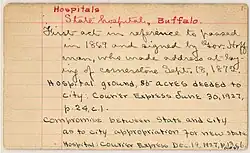 Hospitals
State Hospital, Buffalo.
First act in reference to passed
in 1869 and signed by Gov. Hoff
man, who made address at lay
ing of cornerstone Sept. 18, 187
Hospital ground, 85 acres deeded to
city: Courier Express June 30, 1927,
p. 24, c. 1.
Compromise between State and City
as to city appropriation for new state
Hospital: Courier Express Dec. 17, 1927, p.